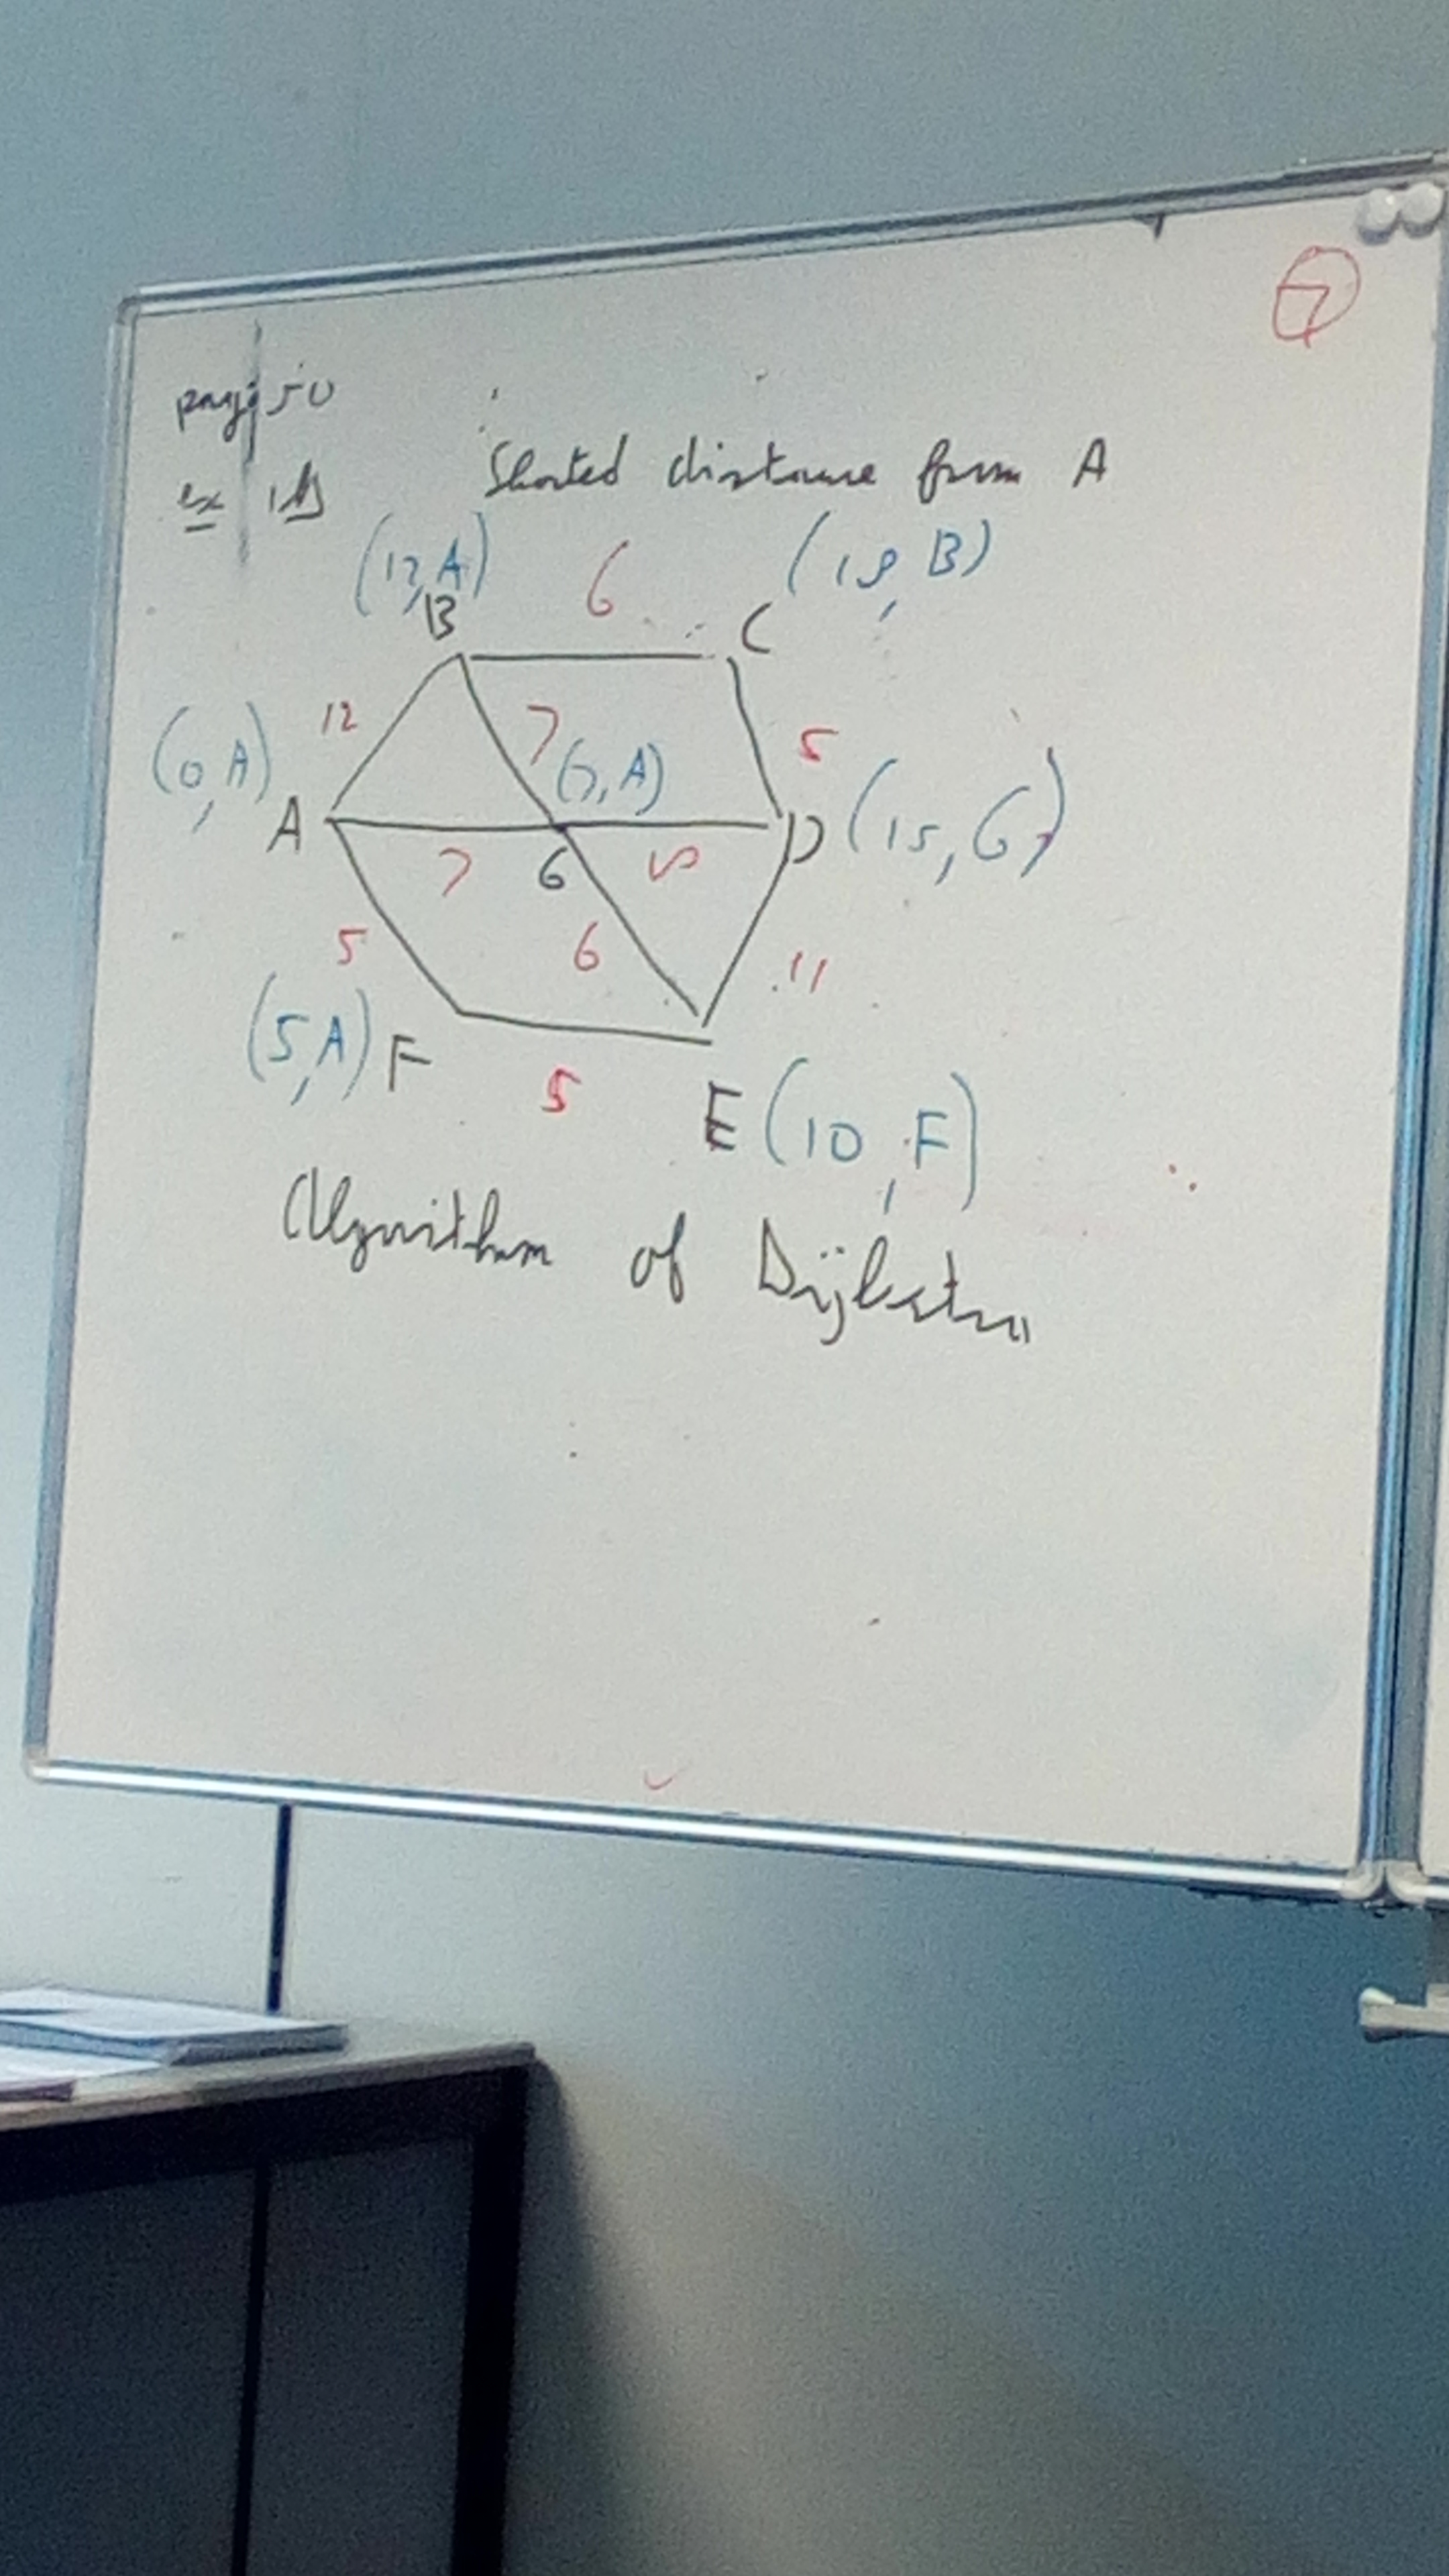 7
page 50
ex
Shorted distance from A
(12, A) 6 (18, B)
B C
12 7 5
(0, A) (7, A)
A D (15, G)
7 G 8
5 6 11
(5, A) F
5 E (10, F)
Algorithm of Dijkstra